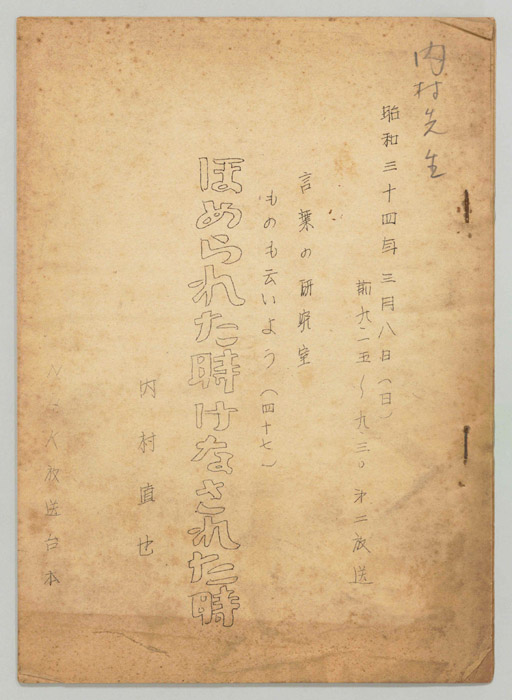 内村先生
昭和三十四年三月八日(日)
前九一五〜九三〇 第二放送
言葉の研究室
ものも云いよう(四十七)
ほめられた時けなされた時
内村直也
放送台本